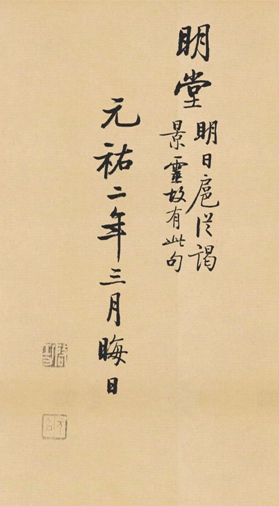 明堂明日扈从謁
景靈故有此句
元祐二年三月晦日